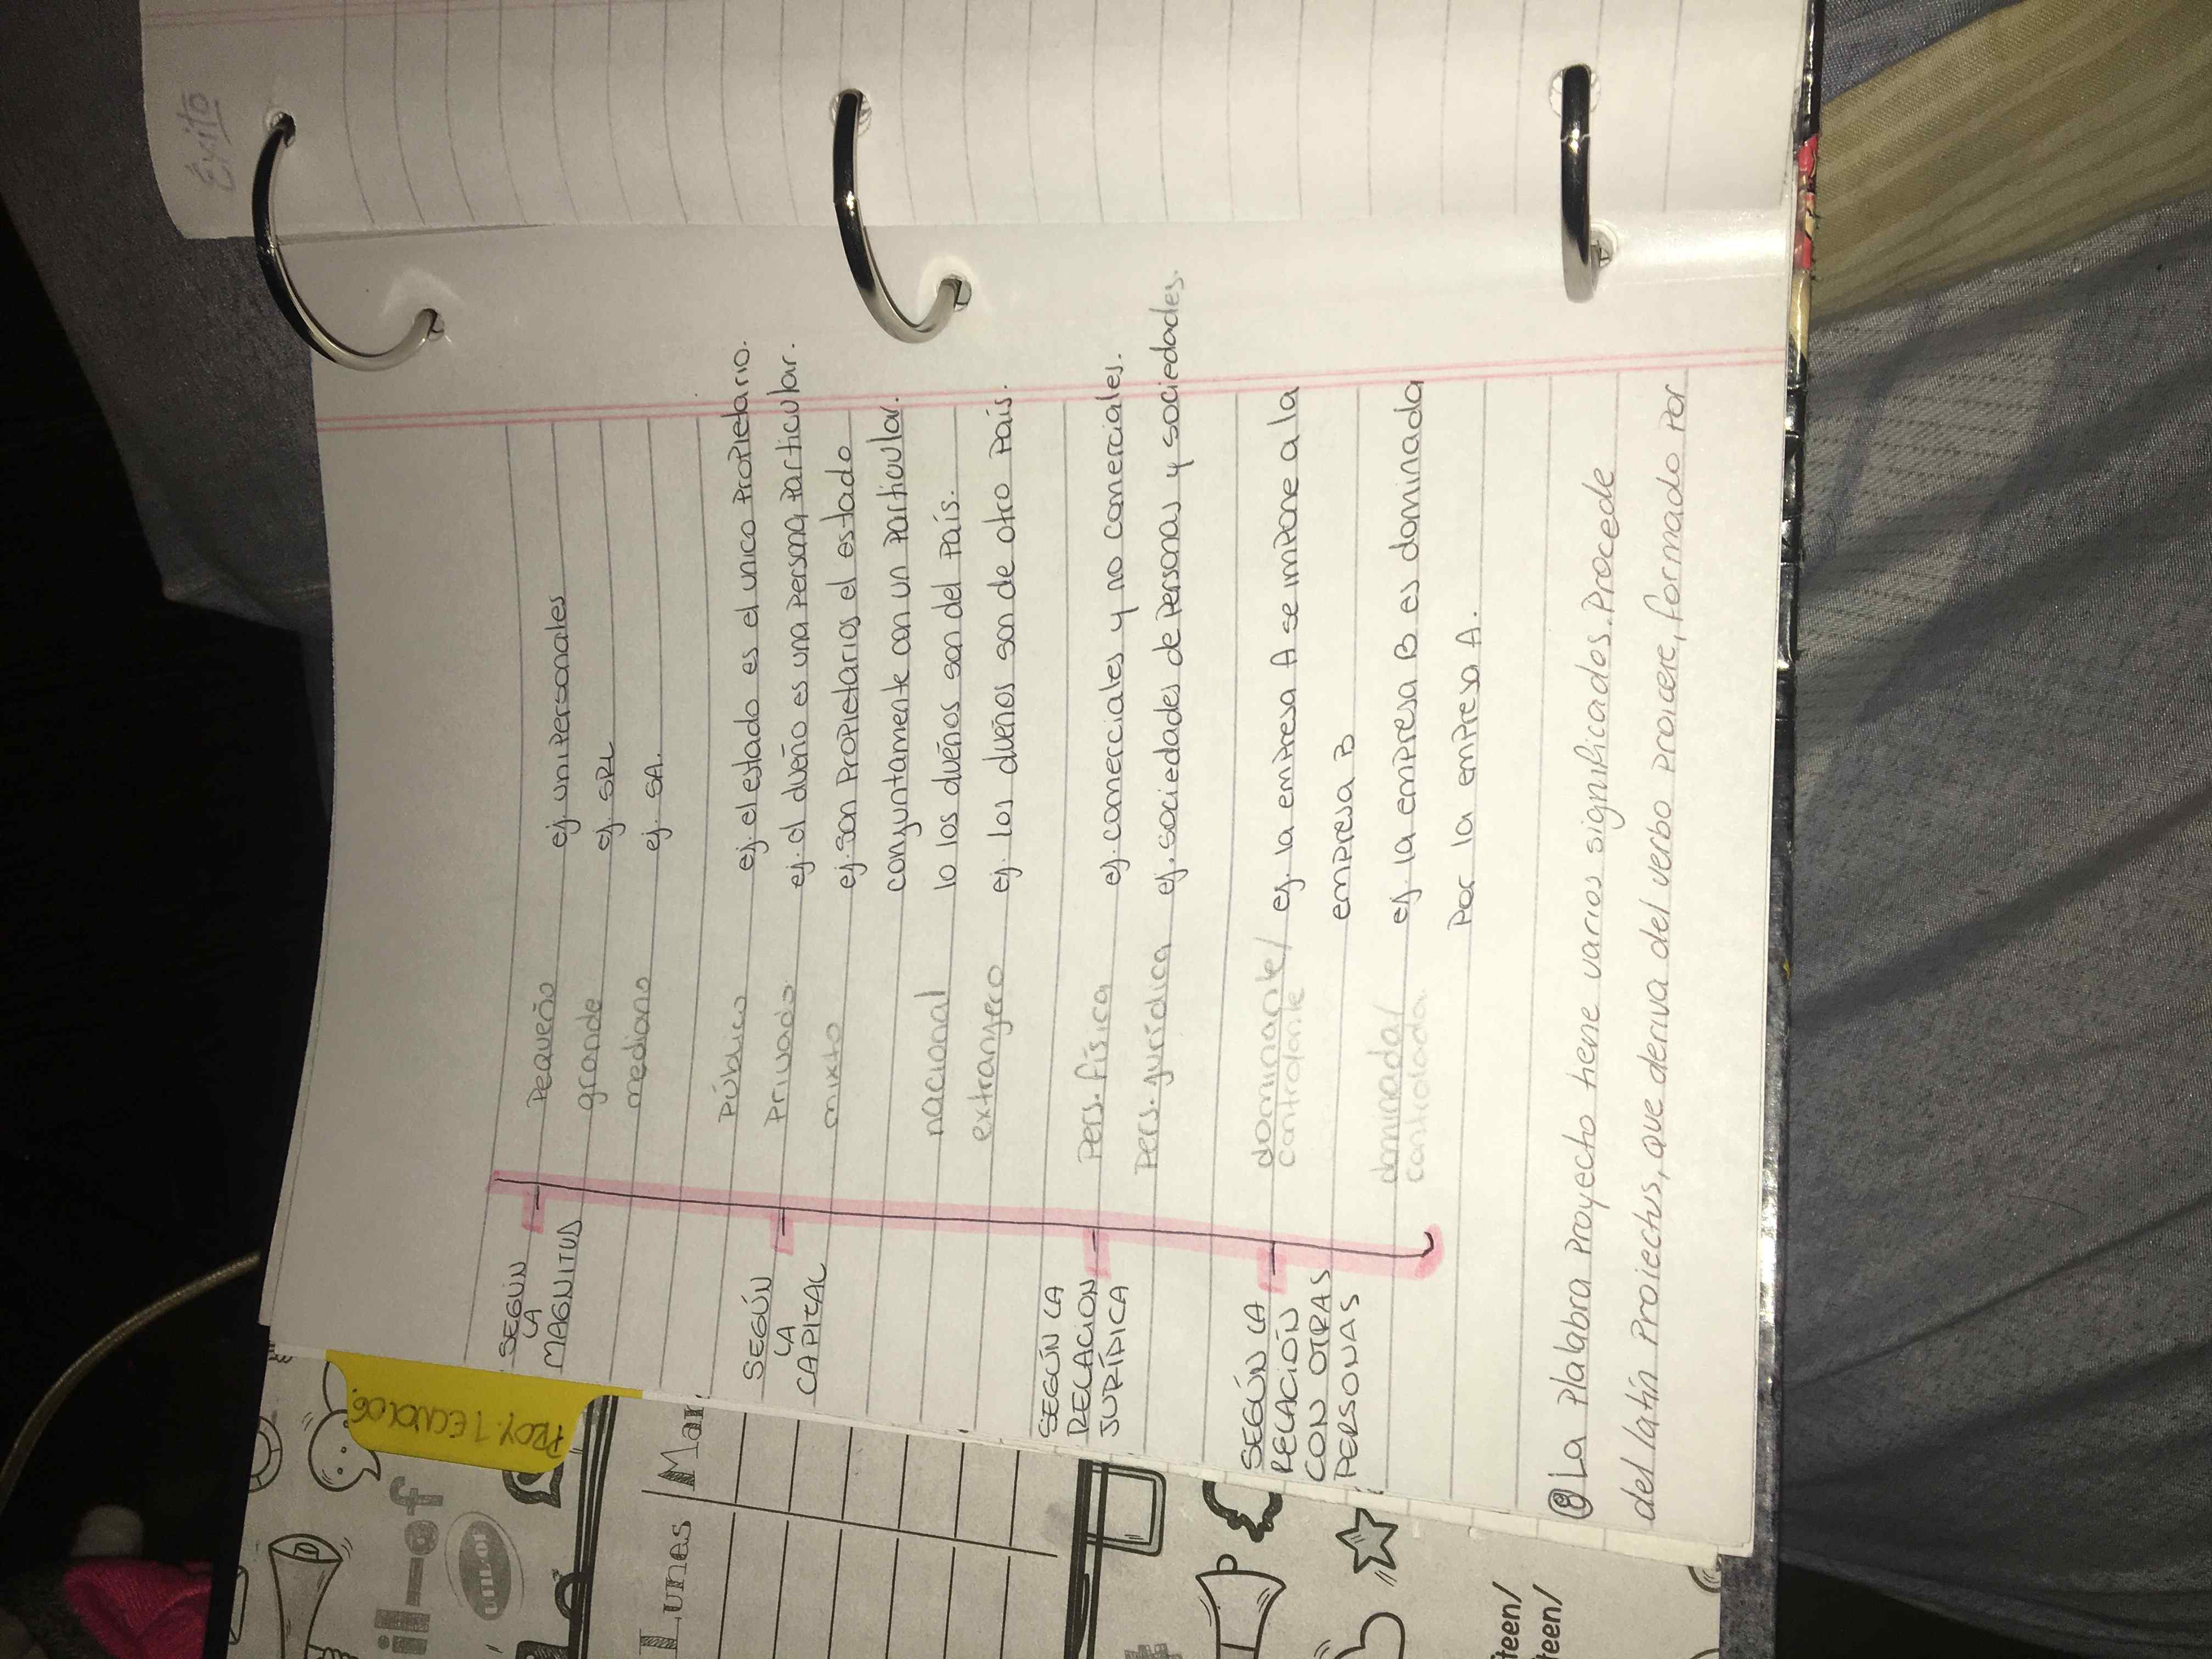 Éxito
PROY. TECNOLOG.
SEGÚN
LA
MAGNITUD
Pequeño ej. unipersonales
grande ej. SRL
mediano ej. SA.
SEGÚN
LA
CAPITAL
Público ej. el estado es el unico propietario.
Privado ej. el dueño es una persona particular.
mixto ej. son propietarios el estado
conjuntamente con un particular.
nacional lo los dueños son del país.
extranjero ej. los dueños son de otro país.
SEGÚN LA
RELACION
JURÍDICA
Pers. física ej. comerciales y no comerciales.
Pers. jurídica ej. sociedades de personas y sociedades.
SEGÚN LA
RELACIÓN
CON OTRAS
PERSONAS
dominante/ ej. la empresa A se impone a la
controlante
empresa B
dominada/ ej. la empresa B es dominada
controlada
Por la empresa A.
⑧ La Plalabra Proyecto tiene varios significados. Procede
del latín Proiectus, que deriva del verbo proicere, formado por
Lunes Mar
il-of
teen/
teen/